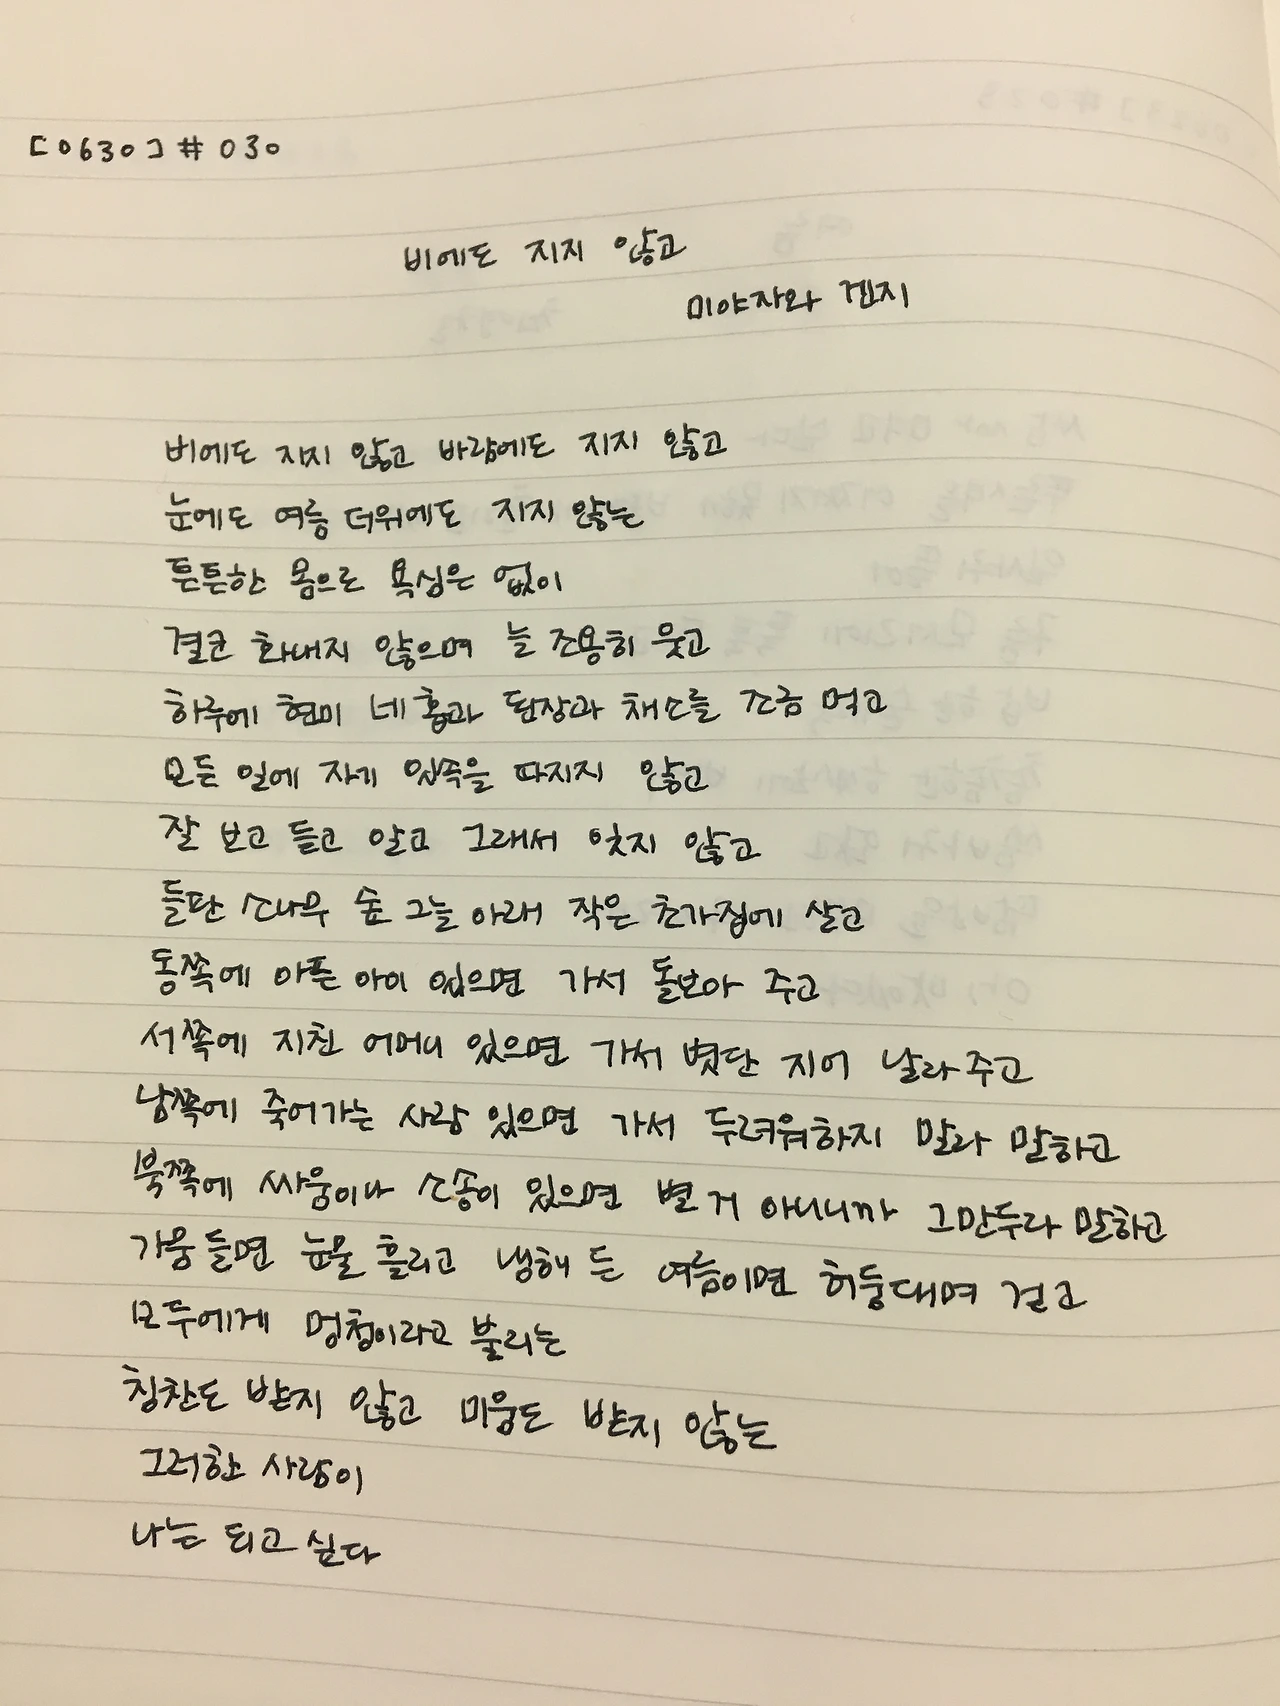 [0630] # 030
비에도 지지 않고
미야자와 겐지
비에도 지지 않고 바람에도 지지 않고
눈에도 여름 더위에도 지지 않는
튼튼한 몸으로 욕심은 없이
결코 화내지 않으며 늘 조용히 웃고
하루에 현미 네 홉과 된장과 채소를 조금 먹고
모든 일에 자기 잇속을 따지지 않고
잘 보고 듣고 알고 그래서 잊지 않고
들판 소나무 숲 그늘 아래 작은 초가집에 살고
동쪽에 아픈 아이 있으면 가서 돌보아 주고
서쪽에 지친 어머니 있으면 가서 볏단 지어 날라 주고
남쪽에 죽어가는 사람 있으면 가서 두려워하지 말라 말하고
북쪽에 싸움이나 소송이 있으면 별 거 아니니까 그만두라 말하고
가뭄 들면 눈물 흘리고 냉해 든 여름이면 허둥대며 걷고
모두에게 멍청이라고 불리는
칭찬도 받지 않고 미움도 받지 않는
그러한 사람이
나는 되고 싶다